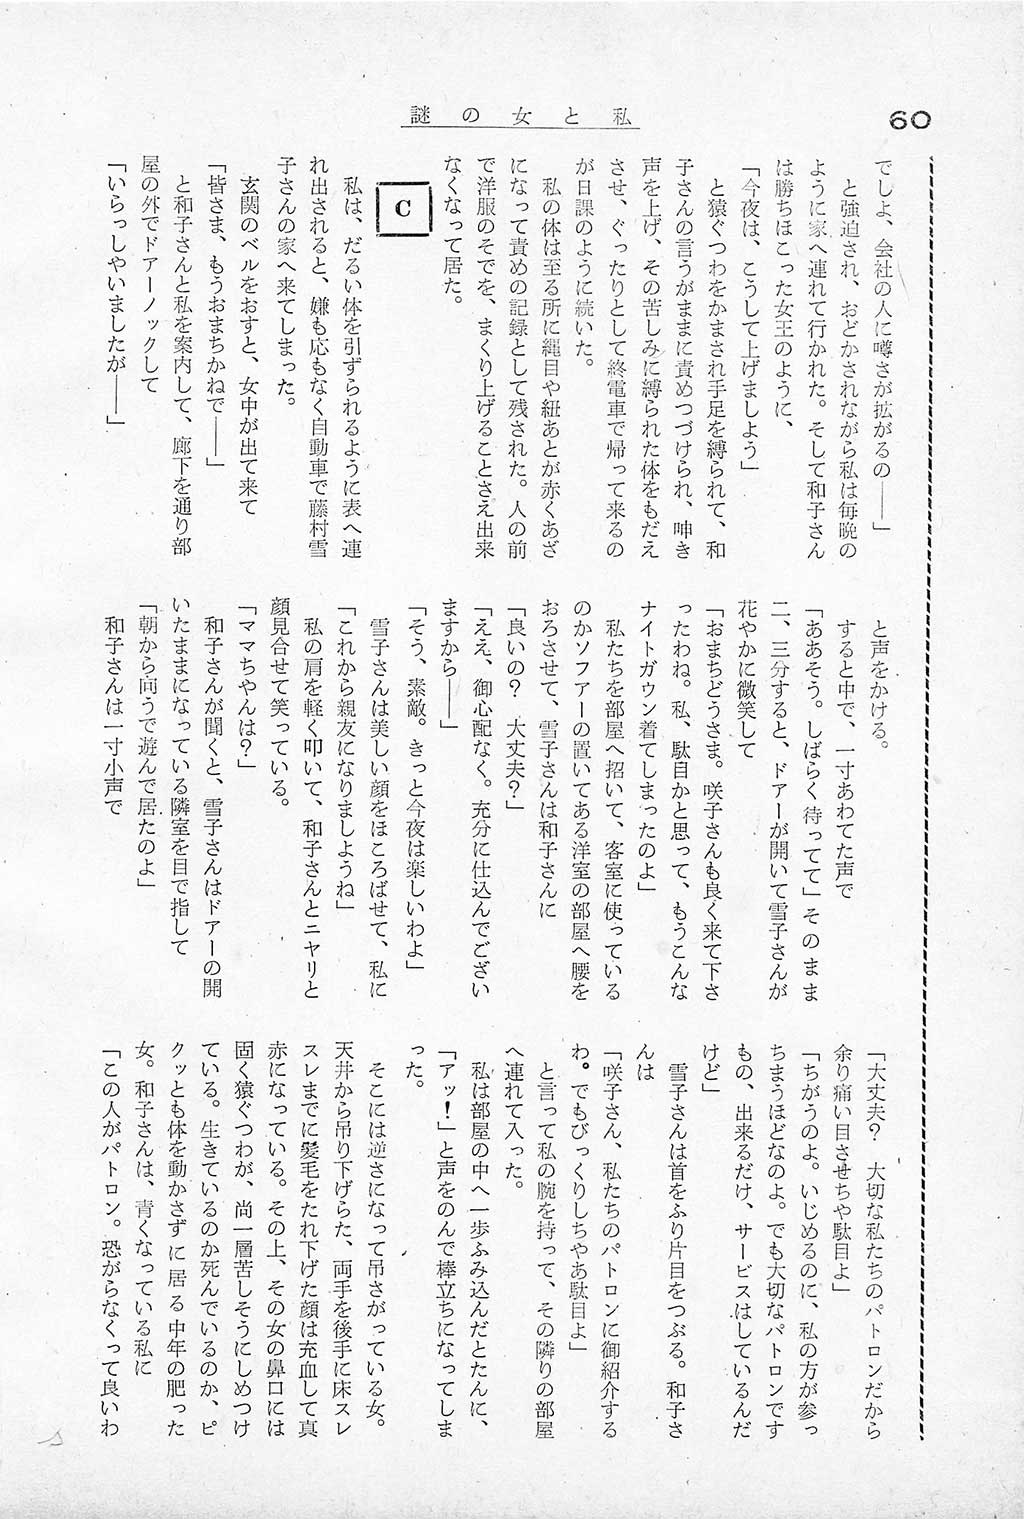 60
謎の女と私
でしよ、会社の人に噂さが拡がるの――」
と強迫され、おどかされながら私は毎晩の
ように家へ連れて行かれた。そして和子さん
は勝ちほこった女王のように、
「今夜は、こうして上げましよう」
と猿ぐつわをかまされ手足を縛られて、和
子さんの言うがままに責めつづけられ、呻き
声を上げ、その苦しみに縛られた体をもだえ
させ、ぐったりとして終電車で帰って来るの
が日課のように続いた。
私の体は至る所に縄目や紐あとが赤くあざ
になって責めの記録として残された。人の前
で洋服のそでを、まくり上げることさえ出来
なくなって居た。
C
私は、だるい体を引ずられるように表へ連
れ出されると、嫌も応もなく自動車で藤村雪
子さんの家へ来てしまった。
玄関のベルをおすと、女中が出て来て
「皆さま、もうおまちかねで――」
と和子さんと私を案内して、廊下を通り部
屋の外でドアーノックして
「いらっしやいましたが――」
と声をかける。
すると中で、一寸あわてた声で
「ああそう。しばらく待ってて」そのまま
二、三分すると、ドアーが開いて雪子さんが
花やかに微笑して
「おまちどうさま。咲子さんも良く来て下さ
ったわね。私、駄目かと思って、もうこんな
ナイトガウン着てしまったのよ」
私たちを部屋へ招いて、客室に使っている
のかソフアーの置いてある洋室の部屋へ腰を
おろさせて、雪子さんは和子さんに
「良いの？　大丈夫？」
「ええ、御心配なく。充分に仕込んでござい
ますから――」
「そう、素敵。きっと今夜は楽しいわよ」
雪子さんは美しい顔をほころばせて、私に
「これから親友になりましようね」
私の肩を軽く叩いて、和子さんとニヤリと
顔見合せて笑っている。
「ママちやんは？」
和子さんが聞くと、雪子さんはドアーの開
いたままになっている隣室を目で指して
「朝から向うで遊んで居たのよ」
和子さんは一寸小声で
「大丈夫？　大切な私たちのパトロンだから
余り痛い目させちや駄目よ」
「ちがうのよ。いじめるのに、私の方が参っ
ちまうほどなのよ。でも大切なパトロンです
もの、出来るだけ、サービスはしているんだ
けど」
雪子さんは首をふり片目をつぶる。和子さ
んは
「咲子さん、私たちのパトロンに御紹介する
わ。でもびっくりしちやあ駄目よ」
と言って私の腕を持って、その隣りの部屋
へ連れて入った。
私は部屋の中へ一歩ふみ込んだとたんに、
「アッ！」と声をのんで棒立ちになってしま
った。
そこには逆さになって吊さがっている女。
天井から吊り下げらた、両手を後手に床スレ
スレまでに髪毛をたれ下げた顔は充血して真
赤になっている。その上、その女の鼻口には
固く猿ぐつわが、尚一層苦しそうにしめつけ
ている。生きているのか死んでいるのか、ピ
クッとも体を動かさずに居る中年の肥った
女。和子さんは、青くなっている私に
「この人がパトロン。恐がらなくって良いわ